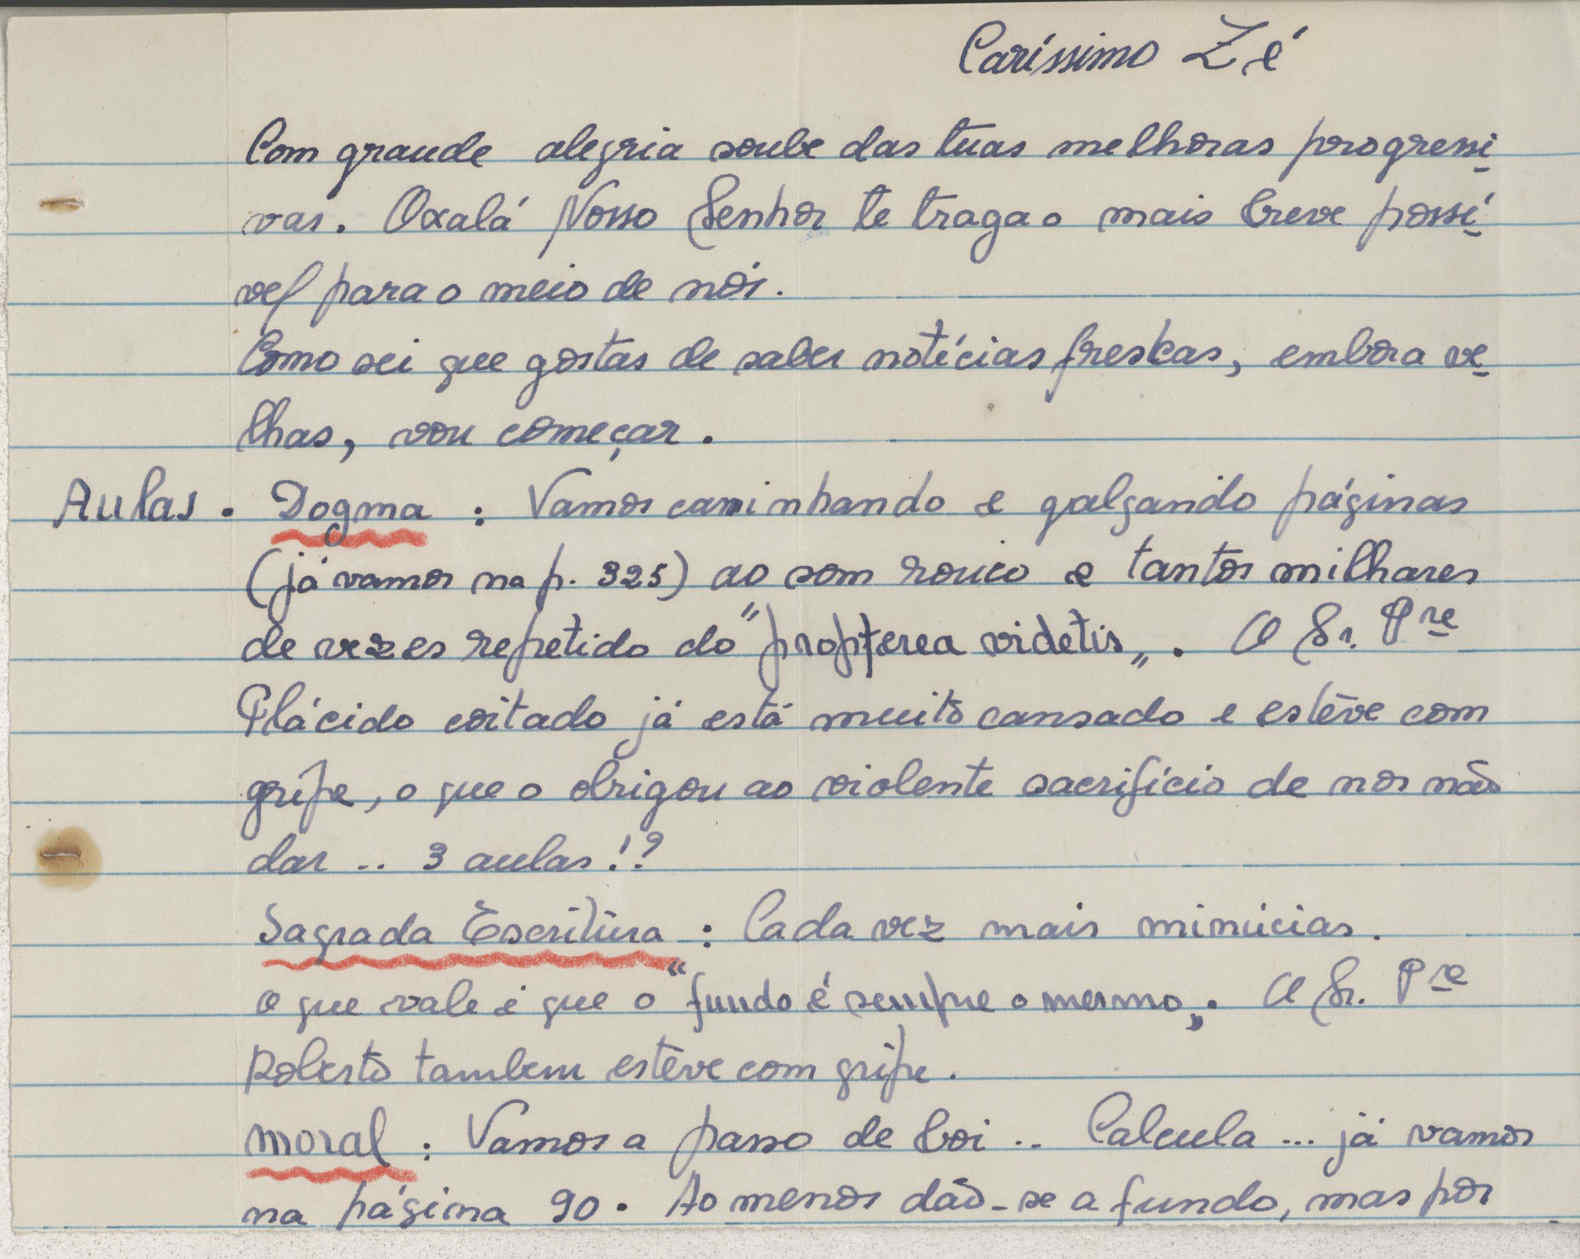 Caríssimo Zé
Com grande alegria soube das tuas melhoras progressi
vas. Oxalá Nosso Senhor te traga o mais breve possí
vel para o meio de nós.
Como sei que gostas de saber notícias freskas, embora ve
lhas, vou começar.
Aulas. Dogma : Vamos caminhando e galgando páginas
(já vamos na p. 325) ao som rouco e tantos milhares
de vezes repetido do "propterea videtis„. O Sr. Pre
Plácido coitado já está muito cansado e estêve com
gripe, o que o obrigou ao violente sacrifício de nos não
dar .. 3 aulas!?
Sagrada Escritura : Cada vez mais minúcias.
o que vale é que o "fundo é sempre o mesmo„. O Sr. Pre
Roberto tambem estêve com gripe.
Moral : Vamos a passo de boi .. Calcula ... já vamos
na página 90. Ao menos dão-se a fundo, mas por